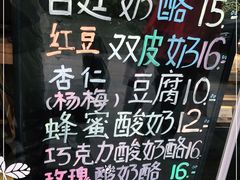 宫廷奶酪 15.
红豆 双皮奶 16.
杏仁
(杨梅) 豆腐 10.
蜂蜜酸奶 12.
巧克力酸奶酪 16.
玫瑰酸奶酪 16.